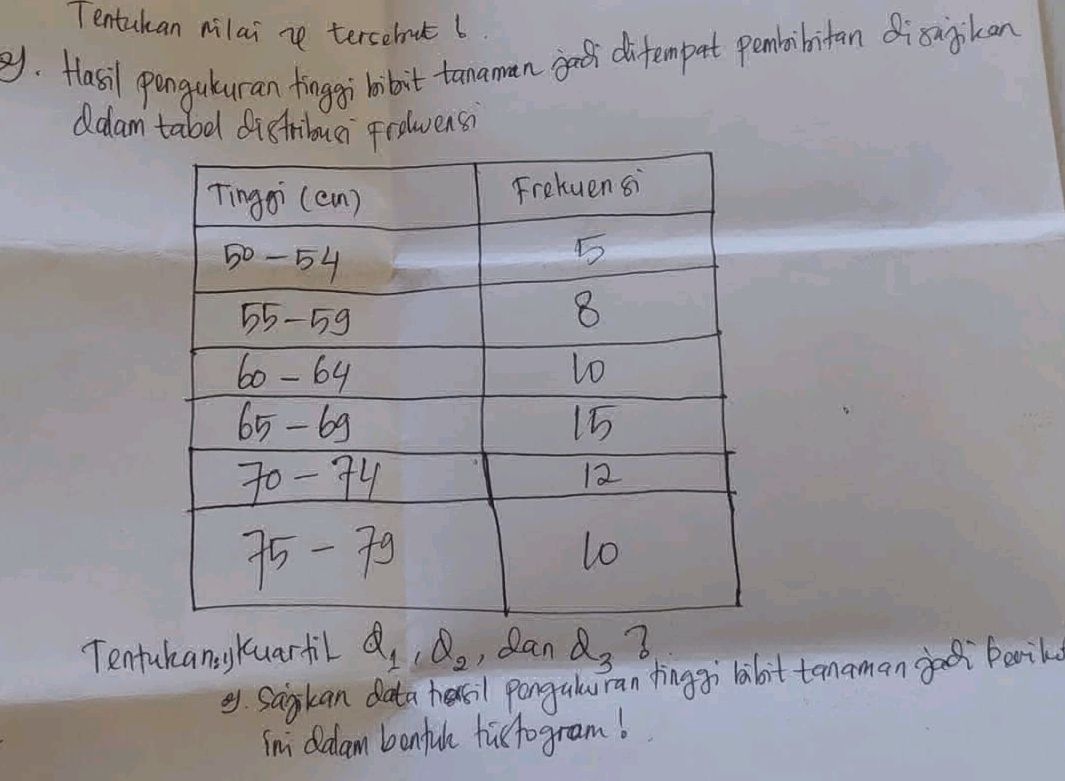 Tentukan nilai x tersebut !
2). Hasil pengukuran tinggi bibit tanaman jadi ditempat pembibitan disajikan
dalam tabel distribusi frekuensi
Tinggi (cm) Frekuensi
50 - 54 5
55 - 59 8
60 - 64 10
65 - 69 15
70 - 74 12
75 - 79 10
Tentukan : 1) Kuartil Q1, Q2, dan Q3 ?
2). Sajikan data hasil pengukuran tinggi bibit tanaman jadi beriku
ini dalam bentuk histogram !